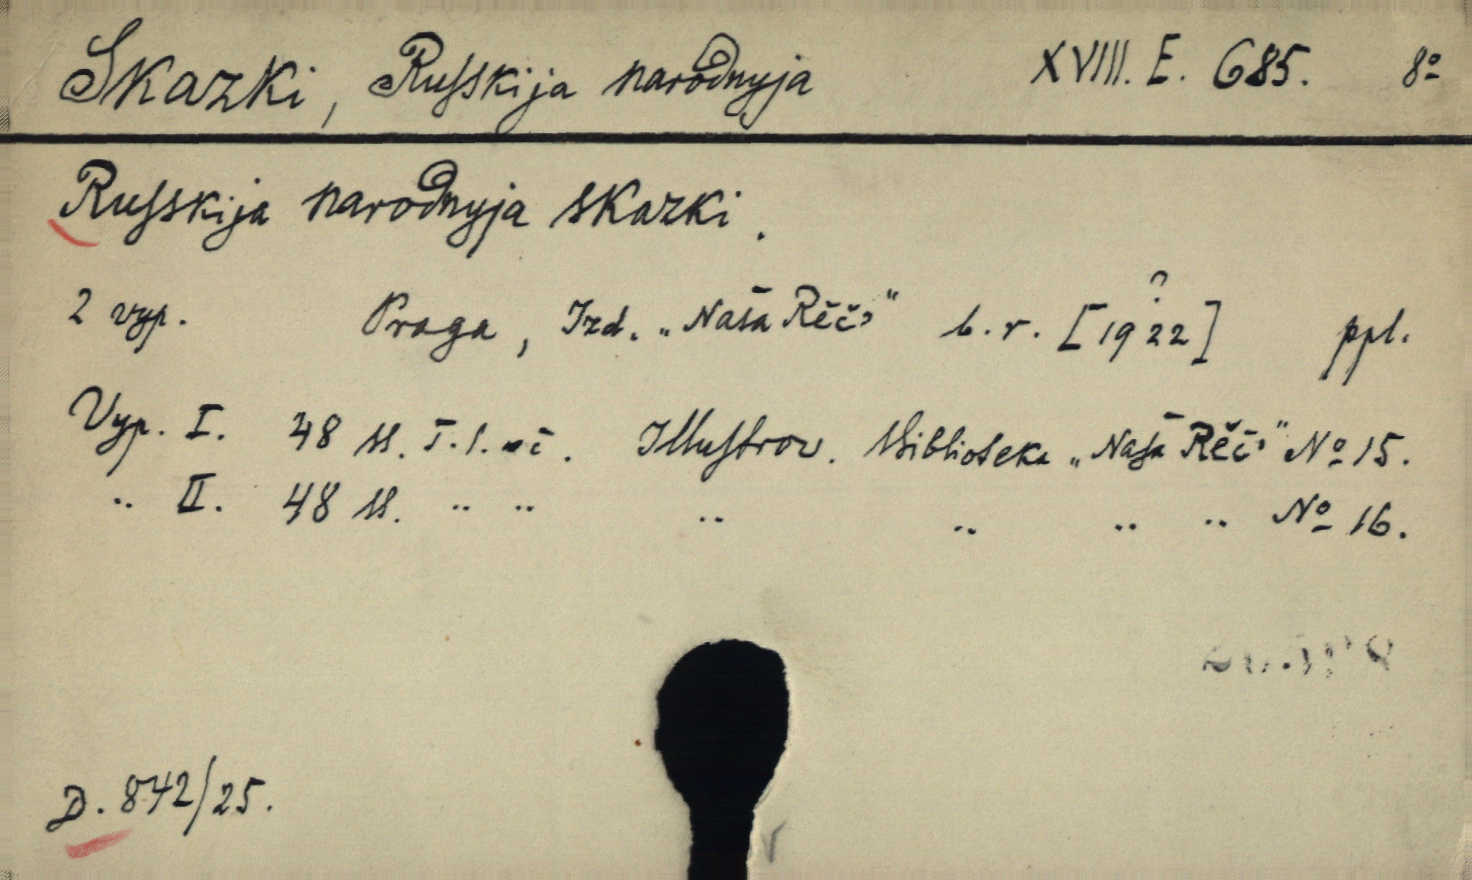 Skazki, Russkija narodnyja XVIII. E. 685. 8º
Russkija narodnyja skazki.
2 vyp. Praga, Izd. „Naša Rěč'" b. r. [19?22] ppl.
Vyp. I. 48 ss. Illustrov. Biblioteka „Naša Rěč'" Nº 15.
„ II. 48 ss. „ „ „ „ „ „ Nº 16.
D. 842/25.